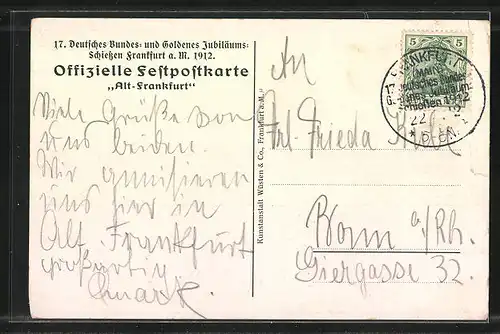 17. Deutsches Bundes- und Goldenes Jubiläums-
Schießen Frankfurt a. M. 1912.
Offizielle Festpostkarte
„Alt-Frankfurt“
Viele Grüße von
uns beiden.
Wir amüsieren
uns hier in
Alt Frankfurt
großartig
Kunstanstalt Wüsten & Co., Frankfurt a. M.
An
Frl. Frieda
Bonn a/Rh.
Giergasse 32.
5 5
FRANKFURT
MAIN
17. Deutsches Bundes-
schießen 1912
22